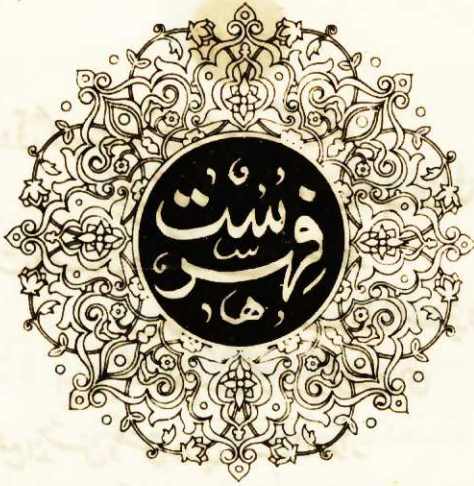 فِهْرِسْت